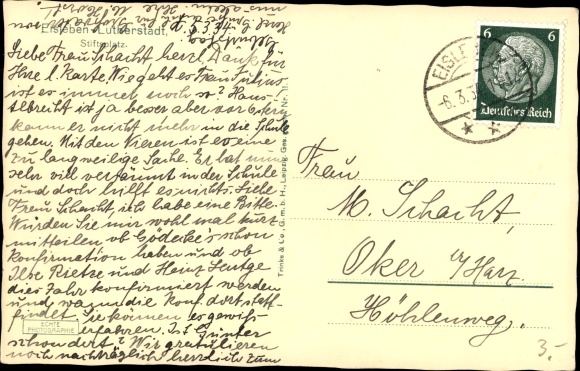 Eisleben, Lutherstadt,
Stiftsplatz.
Liebe Frau Schacht herzl. Dank für
Ihre l. Karte, Wie geht es Frau Julius
ist es immer noch so? Hans-
Albrecht ist ja besser aber vor Ostern
kann er nicht mehr in die Schule
gehen. Mit den Nieren ist es eine
zu langweilige Sache. Er hat nun
sehr viel versäumt in der Schule
und doch hilft es nichts. Liebe
Frau Schacht, ich habe eine Bitte.
Würden Sie mir wohl mal kurz
mitteilen ob Gödecke's schon
Konfirmation haben und ob
Ilse Rietze und Heinz
dies Jahr konfirmiert werden
und wann die Konf. dort statt-
findet. Sie können es gewiß
erfahren. Ist Günter
schon dort? Wir gratulieren
noch nachträglich herzlich zum
6.3.34
Trinks & Co., G.m.b.H., Leipzig.
ECHTE
PHOTOGRAPHIE
EISLEBEN
-6.3.3
6 6
Deutsches Reich
Frau
M. Schacht,
Oker a/Harz
Höhlenweg.
3.-